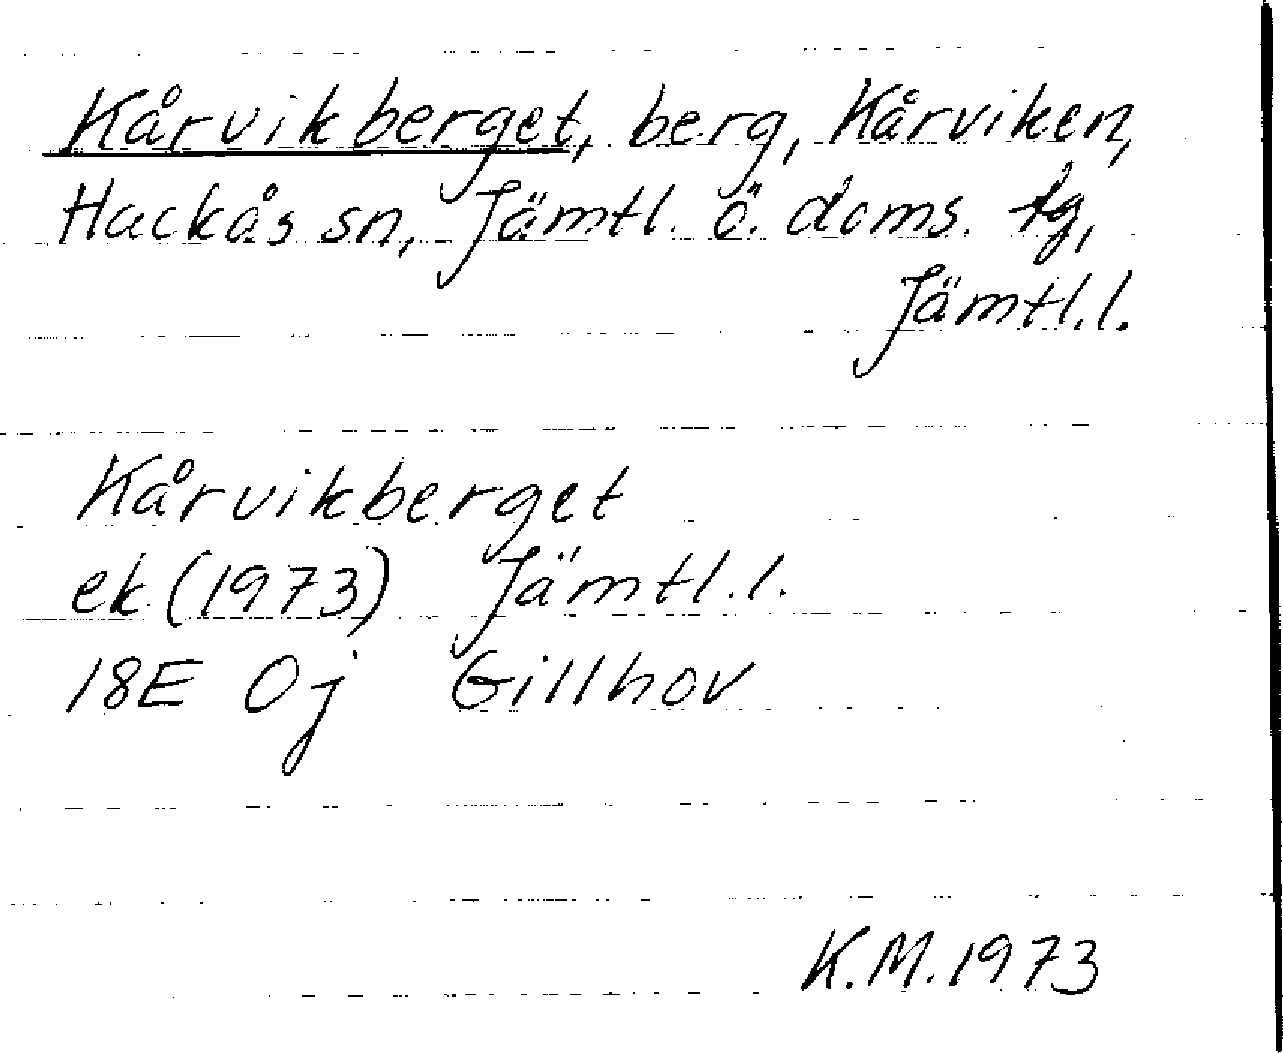 Kårvikberget, berg, Kårviken,
Hackås sn, Jämtl. ö. doms. tg,
Jämtl.l.
Kårvikberget
ek (1973) Jämtl.l.
18E 0j Gillhov
K.M.1973